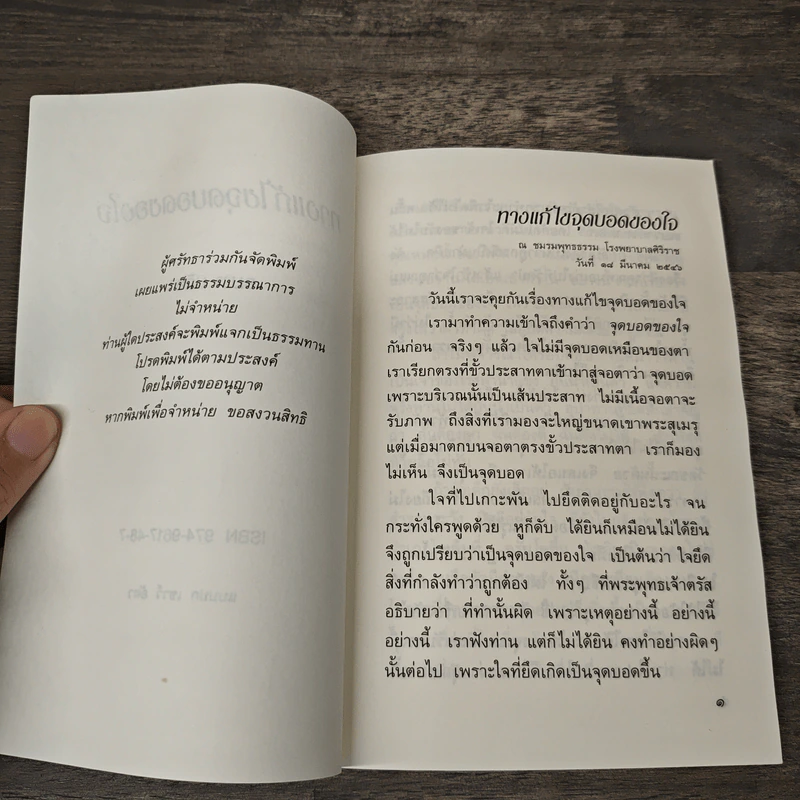 ผู้ศรัทธาร่วมกันจัดพิมพ์
เผยแพร่เป็นธรรมบรรณาการ
ไม่จำหน่าย
ท่านผู้ใดประสงค์จะพิมพ์แจกเป็นธรรมทาน
โปรดพิมพ์ได้ตามประสงค์
โดยไม่ต้องขออนุญาต
หากพิมพ์เพื่อจำหน่าย ขอสงวนสิทธิ
ทางแก้ไขจุดบอดของใจ
ณ ชมรมพุทธธรรม โรงพยาบาลศิริราช
วันที่ ๑๘ มีนาคม ๒๕๔๖
วันนี้เราจะคุยกันเรื่องทางแก้ไขจุดบอดของใจ
เรามาทำความเข้าใจถึงคำว่า จุดบอดของใจ
กันก่อน จริงๆ แล้ว ใจไม่มีจุดบอดเหมือนของตา
เราเรียกตรงที่ขั้วประสาทตาเข้ามาสู่จอตาว่า จุดบอด
เพราะบริเวณนั้นเป็นเส้นประสาท ไม่มีเนื้อจอตาจะ
รับภาพ ถึงสิ่งที่เรามองจะใหญ่ขนาดเขาพระสุเมรุ
แต่เมื่อมาตกบนจอตาตรงขั้วประสาทตา เราก็มอง
ไม่เห็น จึงเป็นจุดบอด
ใจที่ไปเกาะพัน ไปยึดติดอยู่กับอะไร จน
กระทั่งใครพูดด้วย หูก็ดับ ได้ยินก็เหมือนไม่ได้ยิน
จึงถูกเปรียบว่าเป็นจุดบอดของใจ เป็นต้นว่า ใจยึด
สิ่งที่กำลังทำว่าถูกต้อง ทั้งๆ ที่พระพุทธเจ้าตรัส
อธิบายว่า ที่ทำนั้นผิด เพราะเหตุอย่างนี้ อย่างนี้
อย่างนี้ เราฟังท่าน แต่ก็ไม่ได้ยิน คงทำอย่างผิดๆ
นั้นต่อไป เพราะใจที่ยึดเกิดเป็นจุดบอดขึ้น
๑